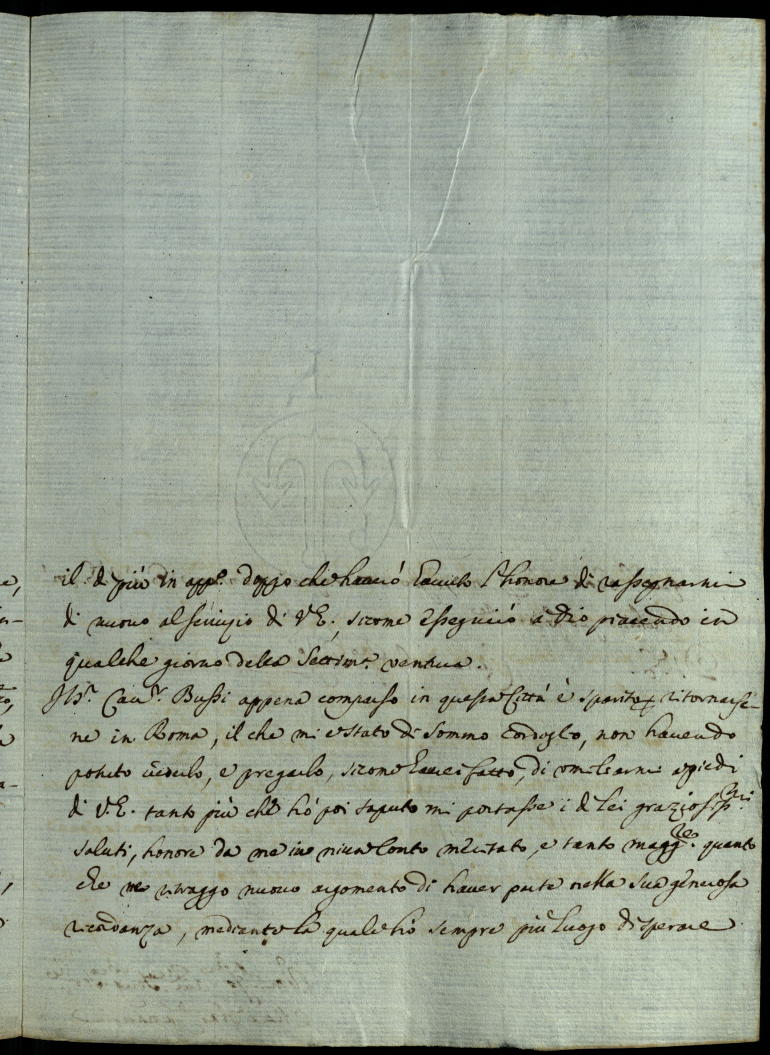 il di più in app.o doppo che haverò havuto l'honore di rassegnarmi
di nuovo al seruizio di V.E., sicome esseguirò a Dio piacendo in
qualche giorno della Settim.a ventura.
Il Sig.r Cau.r Bussi appena comparso in questa Città è sparito p ritornarse-
ne in Roma, il che mi è stato di sommo cordoglio, non havendo
potuto vederlo, e pregarlo, sicome haverei fatto, di umiliarmi a piedi
di V.E. tanto più che hò poi saputo mi portasse i di lei graziosiss.mi
saluti, honore da me in niun conto meritato, e tanto magg.re quanto
che ne ritraggo nuouo argomento di hauer parte nella sua generosa
ricordanza, mediante la quale hò sempre più luogo di sperare